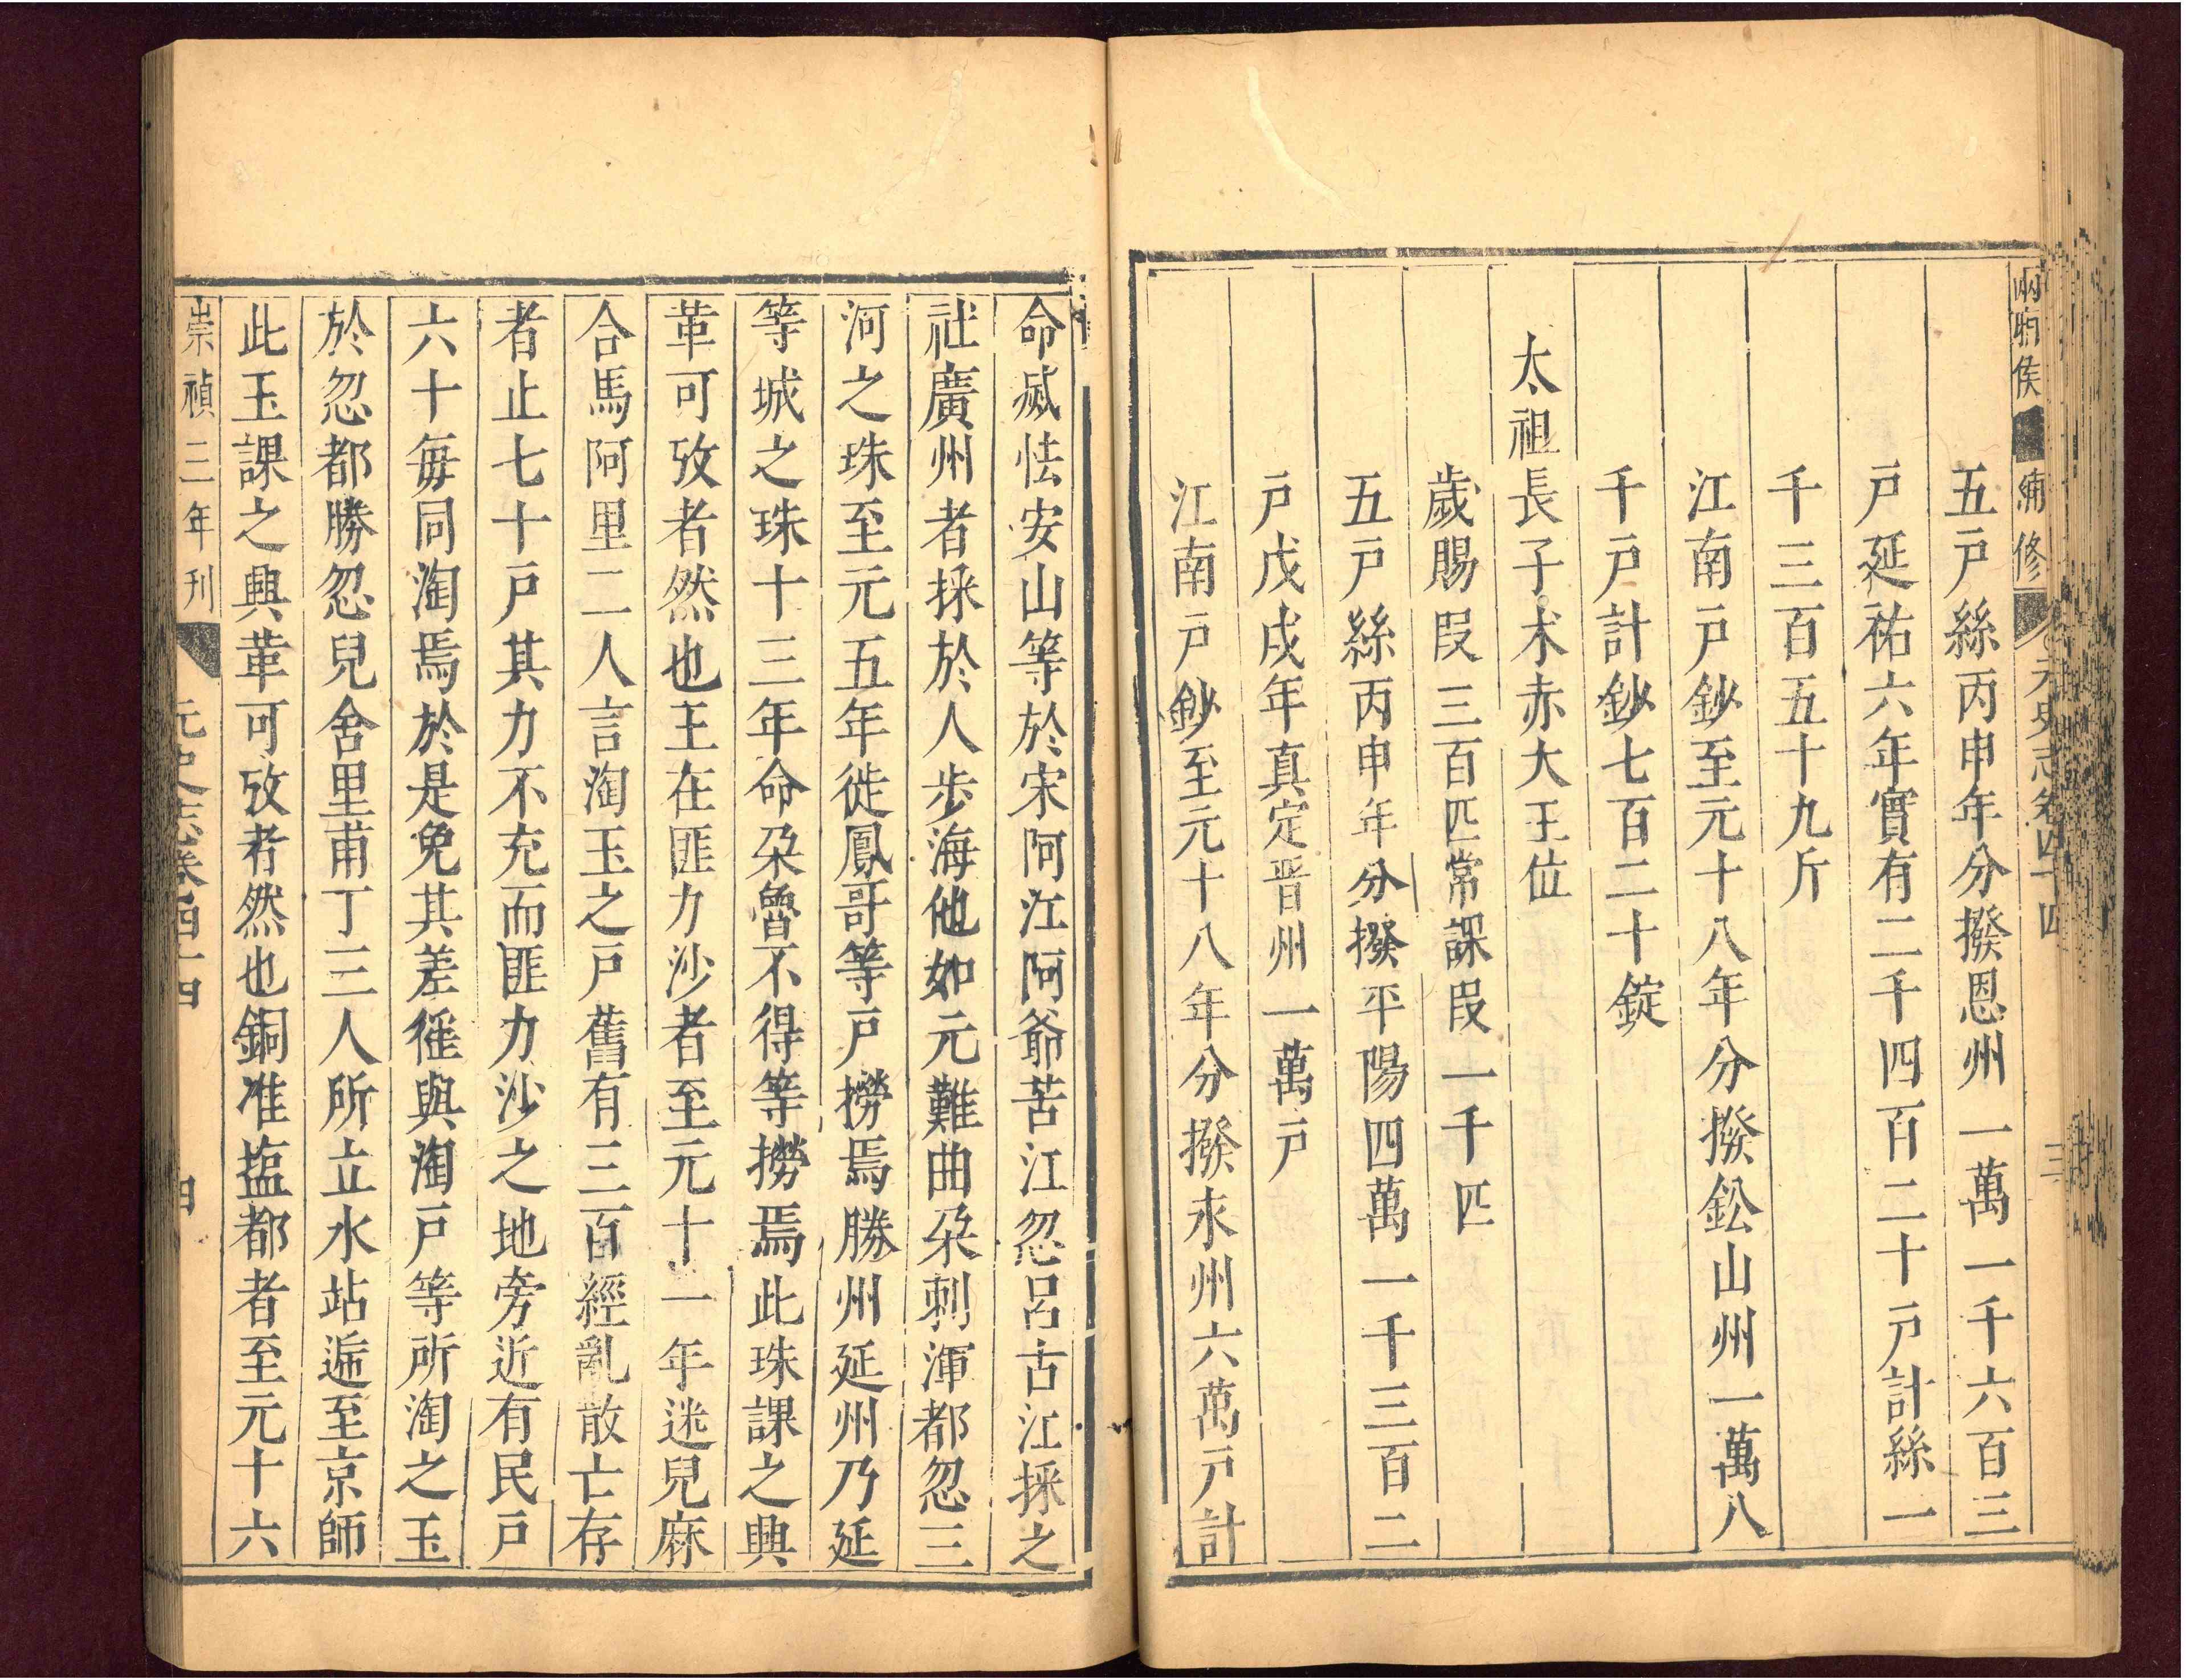 補修
元史志卷四十四
三
五戸絲丙申年分撥恩州一萬一千六百三
戸延祐六年實有二千四百二十戸計絲一
千三百五十九斤
江南戸鈔至元十八年分撥鉛山州一萬八
千戸計鈔七百二十錠
太祖長子朮赤大王位
歲賜段三百匹常課段一千匹
五戸絲丙申年分撥平陽四萬一千三百二
戸戊戌年真定晋州一萬戸
江南戸鈔至元十八年分撥永州六萬戸計
命滅怯安山等於宋阿江阿爺苦江忽呂古江採之
社廣州者採於人步海他如元難曲朶剌渾都忽三
河之珠至元五年徙鳳哥等戸撈焉勝州延州乃延
等城之珠十三年命朶魯不得等撈焉此珠課之興
革可攷者然也王在匪力沙者至元十一年迷兒麻
合馬阿里二人言淘玉之戸舊有三百經亂散亡存
者止七十戸其力不充而匪力沙之地旁近有民戸
六十每同淘焉於是免其差徭與淘戸等所淘之玉
於忽都勝忽兒舍里甫丁三人所立水站遞至京師
此玉課之興革可攷者然也銅准塩都者至元十六
崇禎三年刊
元史志卷四十四
四